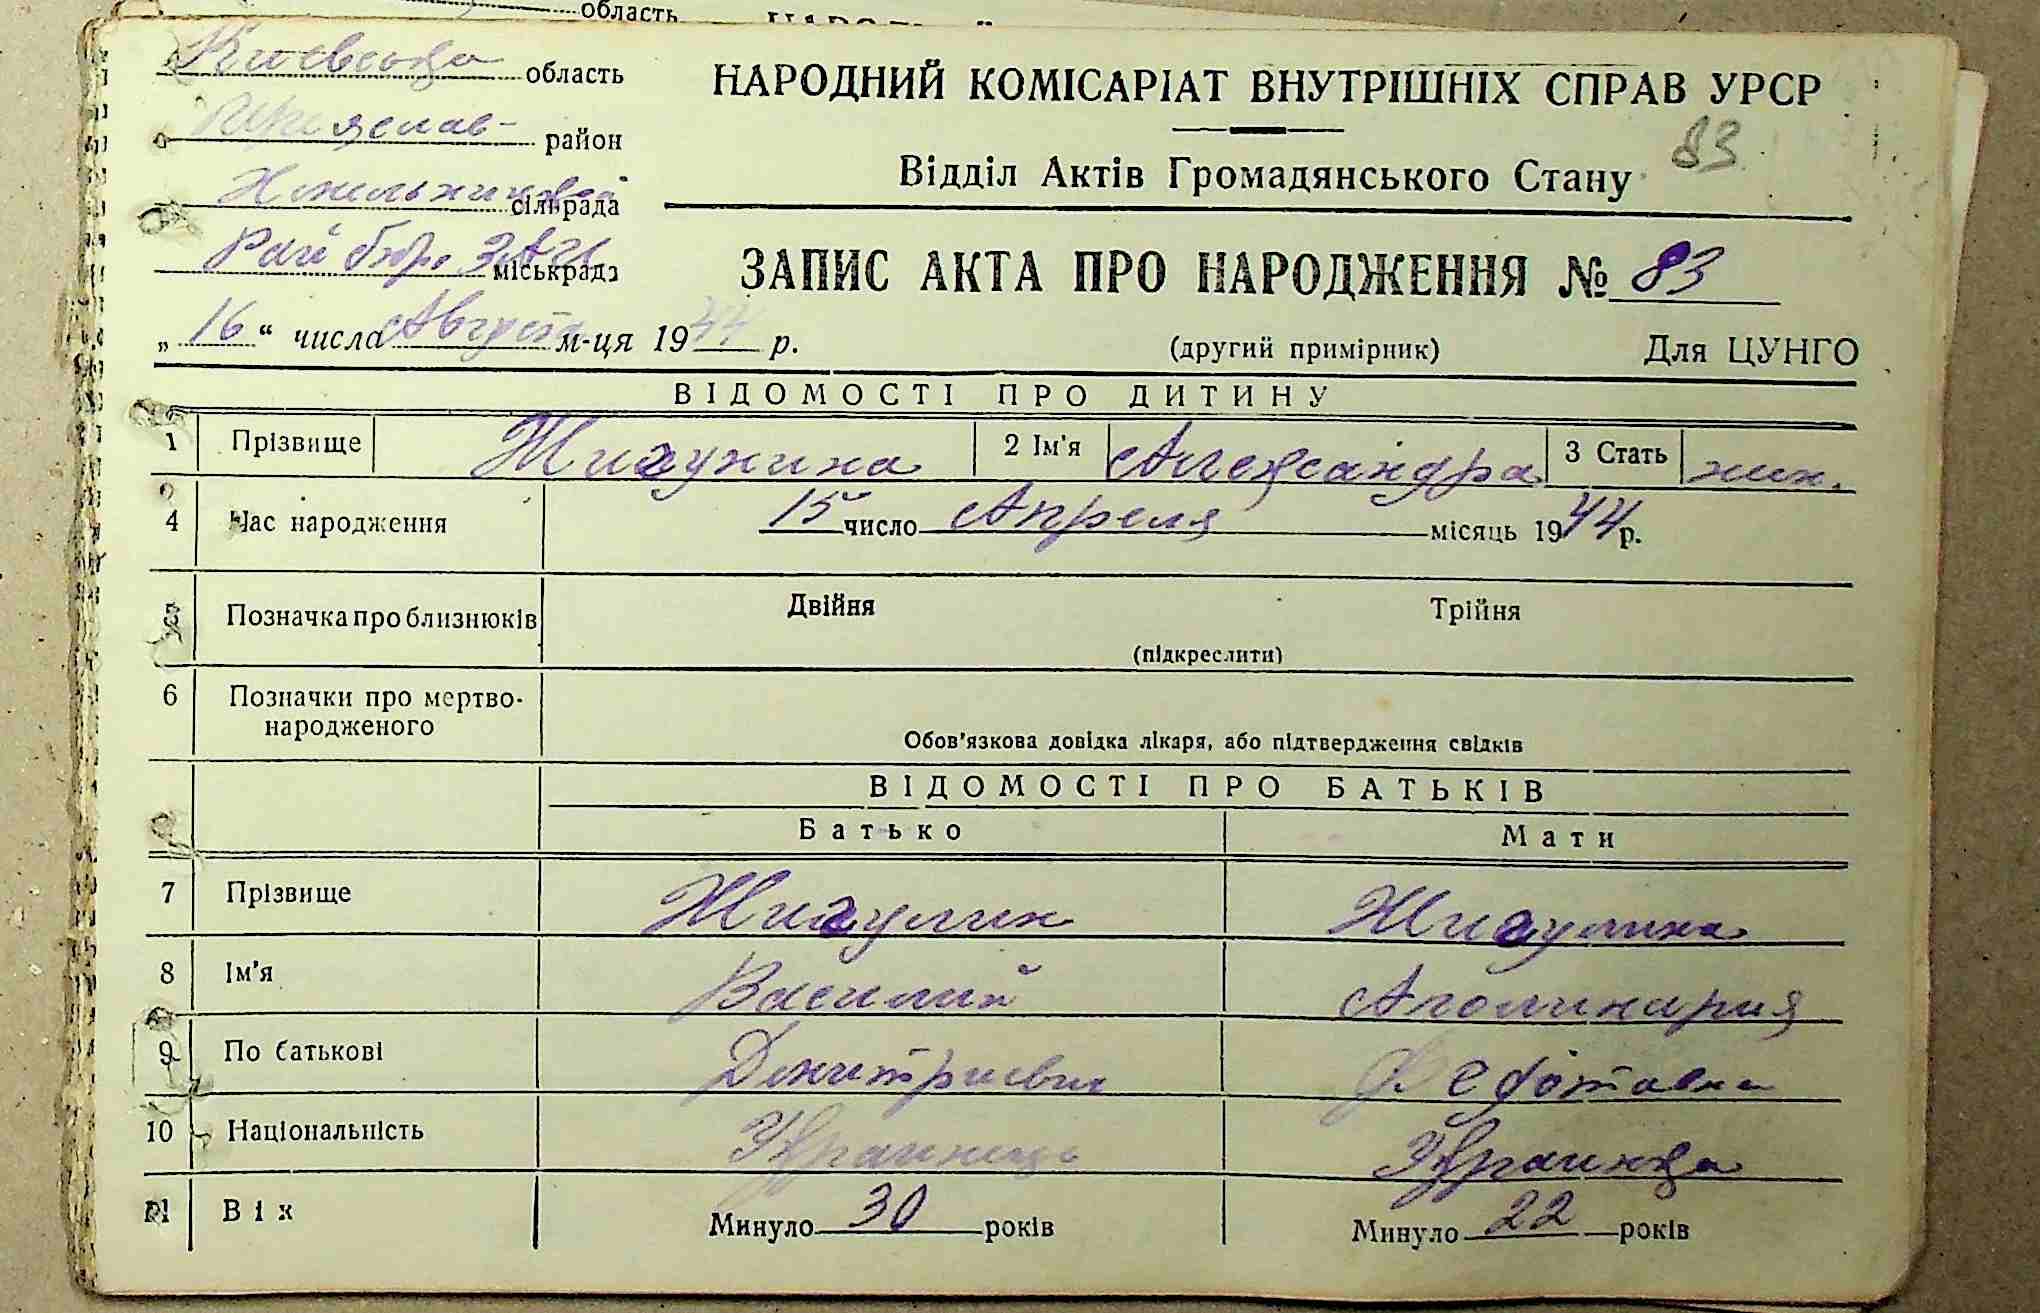 область
Киевская область
Переяслав- район
Хмельницкий сільрада
Рай бюро ЗАГС міськрада
НАРОДНИЙ КОМІСАРІАТ ВНУТРІШНІХ СПРАВ УРСР
83
Відділ Актів Громадянського Стану
ЗАПИС АКТА ПРО НАРОДЖЕННЯ № 83
„16“ числа Августа м-ця 1944 р. (другий примірник) Для ЦУНГО
ВІДОМОСТІ ПРО ДИТИНУ
1 Прізвище Жигулина 2 Ім'я Александра 3 Стать жен.
4 Час народження 15 число Апреля місяць 1944 р.
5 Позначка про близнюків Двійня Трійня
(підкреслити)
6 Позначки про мертво-
народженого
Обов'язкова довідка лікаря, або підтвердження свідків
ВІДОМОСТІ ПРО БАТЬКІВ
Батько Мати
7 Прізвище Жигулин Жигулина
8 Ім'я Василий Аполинария
9 По батькові Дмитриевич Федотовна
10 Національність Украинец Украинка
11 Вік Минуло 30 років Минуло 22 років